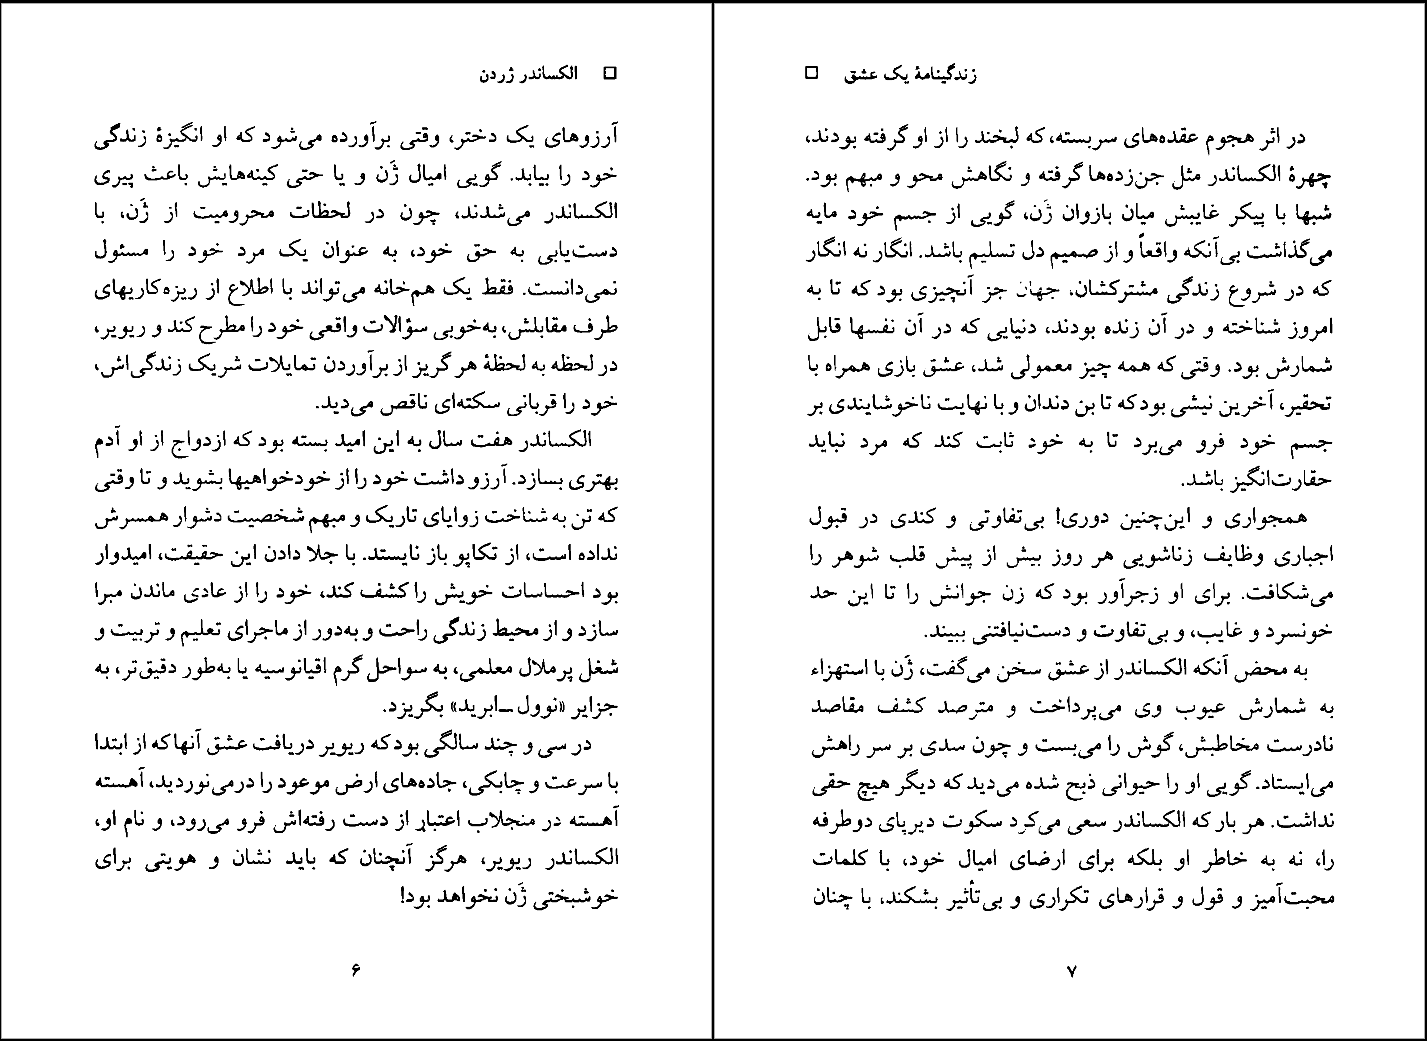 الکساندر ژردن
آرزوهای یک دختر، وقتی برآورده می‌شود که او انگیزهٔ زندگی
خود را بیابد. گویی امیال ژَن و یا حتی کینه‌هایش باعث پیری
الکساندر می‌شدند، چون در لحظات محرومیت از ژَن، با
دست‌یابی به حق خود، به عنوان یک مرد خود را مسئول
نمی‌دانست. فقط یک هم‌خانه می‌تواند با اطلاع از ریزه‌کاریهای
طرف مقابلش، به‌خوبی سؤالات واقعی خود را مطرح کند و ریویر،
در لحظه به لحظهٔ هر گریز از برآوردن تمایلات شریک زندگی‌اش،
خود را قربانی سکته‌ای ناقص می‌دید.
الکساندر هفت سال به این امید بسته بود که ازدواج از او آدم
بهتری بسازد. آرزو داشت خود را از خودخواهیها بشوید و تا وقتی
که تن به شناخت زوایای تاریک و مبهم شخصیت دشوار همسرش
نداده است، از تکاپو باز نایستد. با جلا دادن این حقیقت، امیدوار
بود احساسات خویش را کشف کند، خود را از عادی ماندن مبرا
سازد و از محیط زندگی راحت و به‌دور از ماجرای تعلیم و تربیت و
شغل پرملال معلمی، به سواحل گرم اقیانوسیه یا به‌طور دقیق‌تر، به
جزایر «نوول ـ ابرید» بگریزد.
در سی و چند سالگی بود که ریویر دریافت عشق آنها که از ابتدا
با سرعت و چابکی، جاده‌های ارض موعود را درمی‌نوردید، آهسته
آهسته در منجلاب اعتبار از دست رفته‌اش فرو می‌رود، و نام او،
الکساندر ریویر، هرگز آنچنان که باید نشان و هویتی برای
خوشبختی ژَن نخواهد بود!
۶
زندگینامهٔ یک عشق
در اثر هجوم عقده‌های سربسته، که لبخند را از او گرفته بودند،
چهرهٔ الکساندر مثل جن‌زده‌ها گرفته و نگاهش محو و مبهم بود.
شبها با پیکر غایبش میان بازوان ژَن، گویی از جسم خود مایه
می‌گذاشت بی‌آنکه واقعاً و از صمیم دل تسلیم باشد. انگار نه انگار
که در شروع زندگی مشترکشان، جهان جز آنچیزی بود که تا به
امروز شناخته و در آن زنده بودند، دنیایی که در آن نفسها قابل
شمارش بود. وقتی که همه چیز معمولی شد، عشق بازی همراه با
تحقیر، آخرین نیشی بود که تا بن دندان و با نهایت ناخوشایندی بر
جسم خود فرو می‌برد تا به خود ثابت کند که مرد نباید
حقارت‌انگیز باشد.
همجواری و این‌چنین دوری! بی‌تفاوتی و کندی در قبول
اجباری وظایف زناشویی هر روز بیش از پیش قلب شوهر را
می‌شکافت. برای او زجرآور بود که زن جوانش را تا این حد
خونسرد و غایب، و بی‌تفاوت و دست‌نیافتنی ببیند.
به محض آنکه الکساندر از عشق سخن می‌گفت، ژَن با استهزاء
به شمارش عیوب وی می‌پرداخت و مترصد کشف مقاصد
نادرست مخاطبش، گوش را می‌بست و چون سدی بر سر راهش
می‌ایستاد. گویی او را حیوانی ذبح شده می‌دید که دیگر هیچ حقی
نداشت. هر بار که الکساندر سعی می‌کرد سکوت دیرپای دوطرفه
را، نه به خاطر او بلکه برای ارضای امیال خود، با کلمات
محبت‌آمیز و قول و قرارهای تکراری و بی‌تأثیر بشکند، با چنان
۷